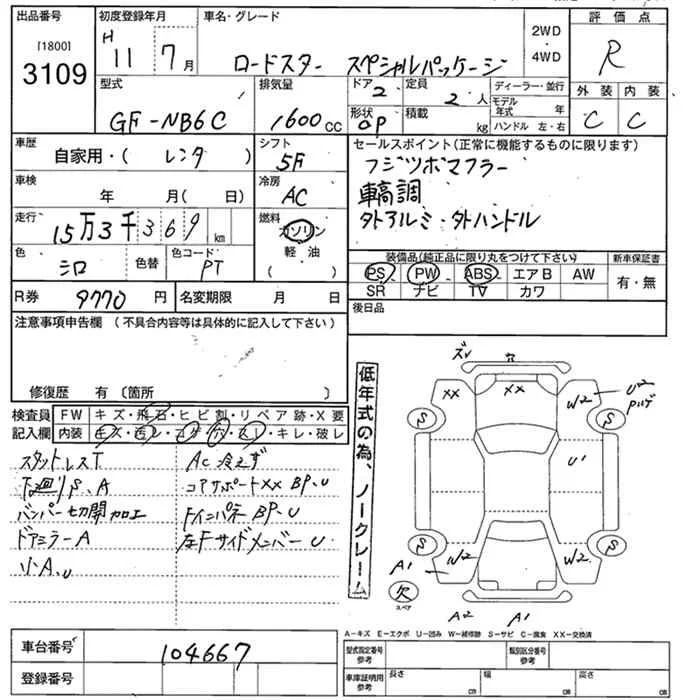 出品番号 初度登録年月 車名・グレード 2WD・4WD 評価点
[1800]
3109
H 11 7月 ロードスター スペシャルパッケージ R
型式 排気量 ドア 2 定員 2人 ディーラー・並行 外装 内装
GF-NB6C 1600cc 形状 OP 積載 kg モデル年式 年 C C
ハンドル 左・右
車歴 シフト セールスポイント(正常に機能するものに限ります)
自家用・( レンタ ) 5F フジツボマフラー
車検 冷房 車高調
年 月( 日) AC 社外アルミ・社外ハンドル
走行 燃料
15万3千369km ガソリン
軽・油
色 色替 色コード 装備品(純正品に限り丸をつけて下さい) 新車保証書
シロ PT PS PW ABS エアB AW 有・無
SR ナビ TV カワ
R券 9770円 名変期限 月 日 後日品
注意事項申告欄 (不具合内容等は具体的に記入して下さい)
修復歴 有 〔箇所 〕
検査員記入欄 FW キズ・飛石・ヒビ割・リペア跡・X要
内装 キズ・汚レ・コゲ・穴・スレ・キレ・破レ
スタットレスT AC冷えず
下廻りS、A コアサポートXX BP、U
バンパー切開加工 FインパネBP、U
ドアミラーA 左Fサイドメンバー U
小A、U
低年式の為、ノークレーム
ズレ 穴
XX XX W2 U2
S S U1
S S
W2 W2
A1
欠
スペア
A2 A1
A-キズ E-エクボ U-凹み W-補修跡 S-サビ C-腐食 XX-交換済
車台番号 104667
登録番号
型式指定番号参考 類別区分番号参考
車庫証明用参考 長さ cm 幅 cm 高さ cm